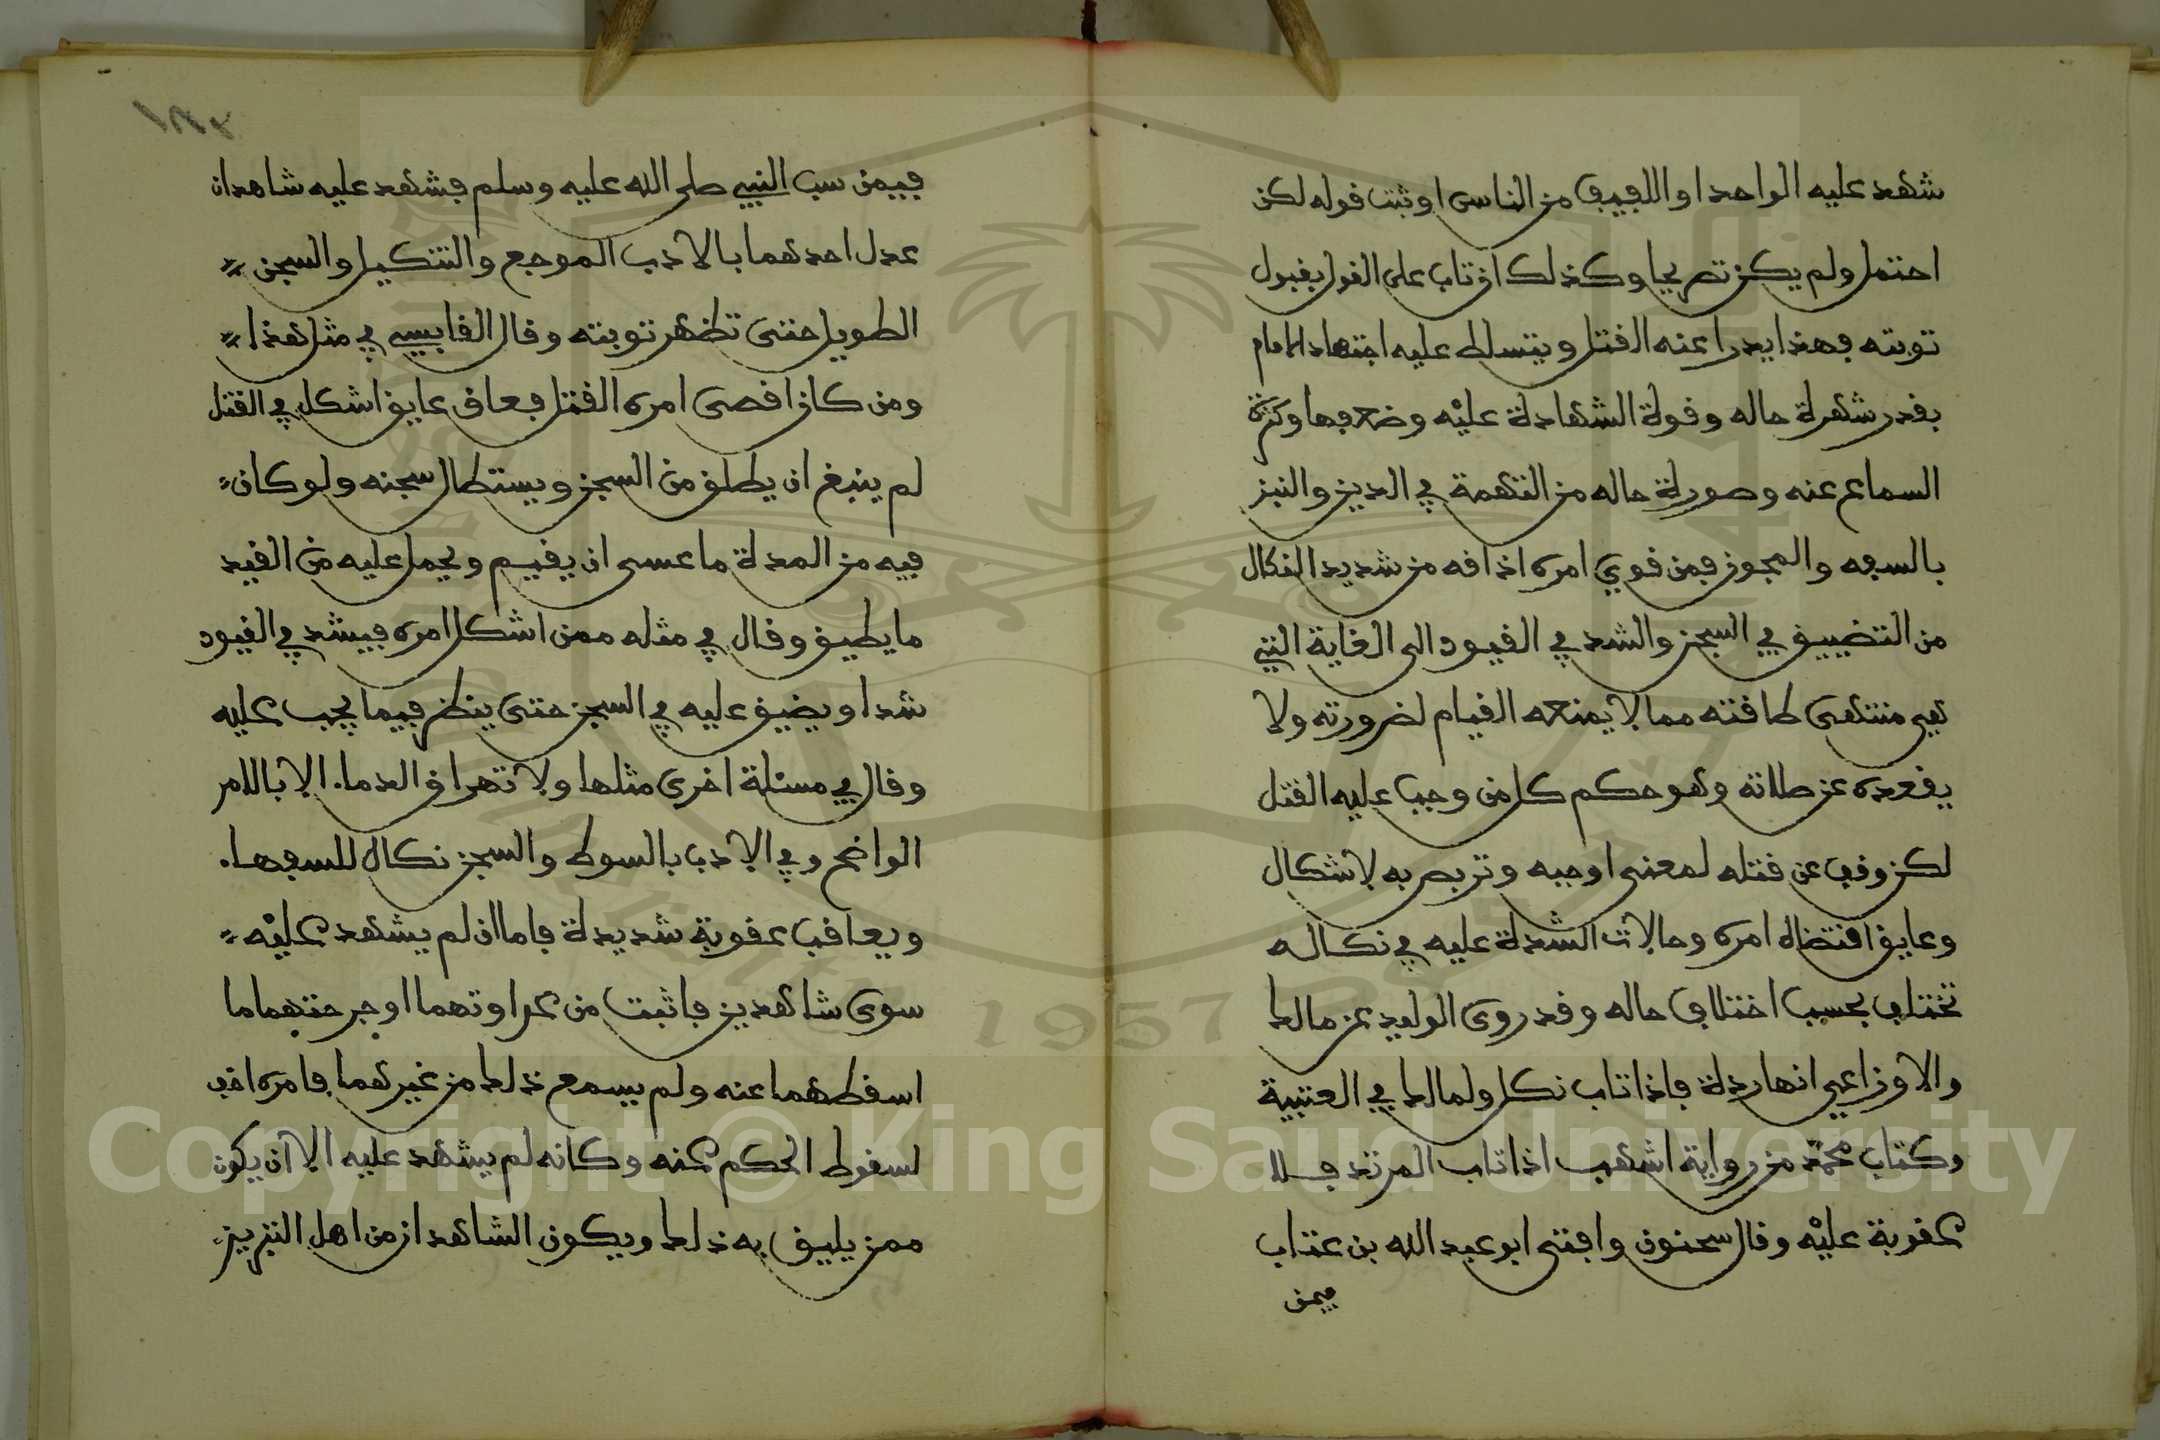 شهد عليه الواحد او اللفيف من الناس او ثبت قوله لكن
احتمل ولم يكن تصريحا وكذلك ان تاب على القول بقبول
توبته فهذا يدرا عنه القتل ويتسلط عليه اجتهاد الامام
بقدر شهرة حاله وقوة الشهادة عليه وضعفها وكثرة
السماع عنه وصورة حاله من التهمة في الدين والنبز
بالسفه والمجون فمن قوي امره اذاقه من شديد النكال
من التضييق في السجن والشد في القيود الى الغاية التي
هي منتهى طاقته مما لا يمنعه القيام لضرورته ولا
يقعده عن صلاته وهو حكم كل من وجب عليه القتل
لكن وقف عن قتله لمعنى اوجبه وتربص به لاشكال
وعايق اقتضاه امره وحالات الشدة عليه في نكاله
تختلف بحسب اختلاف حاله وقد روى الوليد عن مالك
والاوزاعي انها ردة فاذا تاب نكل ولمالك في العتبية
وكتاب محمد من رواية اشهب اذا تاب المرتد فلا
عقوبة عليه وقال سحنون وافتى ابو عبد الله بن عتاب
فيمن
فيمن سب النبي صلى الله عليه وسلم فشهد عليه شاهدان
عدل احدهما بالادب الموجع والتنكيل والسجن
الطويل حتى تظهر توبته وقال القابسي في مثل هذا
ومن كان اقصى امره القتل فعاق عايق اشكل في القتل
لم ينبغ ان يطلق من السجن ويستطال سجنه ولو كان
فيه من المدة ما عسى ان يقيم ويحمل عليه من القيد
ما يطيق وقال في مثله ممن اشكل امره فيشد في القيود
شدا ويضيق عليه في السجن حتى ينظر فيما يجب عليه
وقال في مسئلة اخرى مثلها ولا تهراق الدماء الا بالامر
الواضح وفي الادب بالسوط والسجن نكال للسفهاء
ويعاقب عقوبة شديدة فاما ان لم يشهد عليه
سوى شاهدين فاثبت من عداوتهما او جرحتهما ما
اسقطهما عنه ولم يسمع ذلك من غيرهما فامره اخف
لسقوط الحكم عنه وكانه لم يشهد عليه الا ان يكون
ممن يليق به ذلك ويكون الشاهدان من اهل التبريز
Copyright © King Saud University
1957